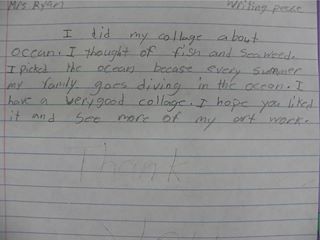 Mrs Ryan Writing peice
I did my collage about
ocean. I thought of fish and seaweed.
I picked the ocean becase every summer
my family goes diving in the ocean. I
have a very good collage. I hope you liked
it and see more of my art work.
Thank
You